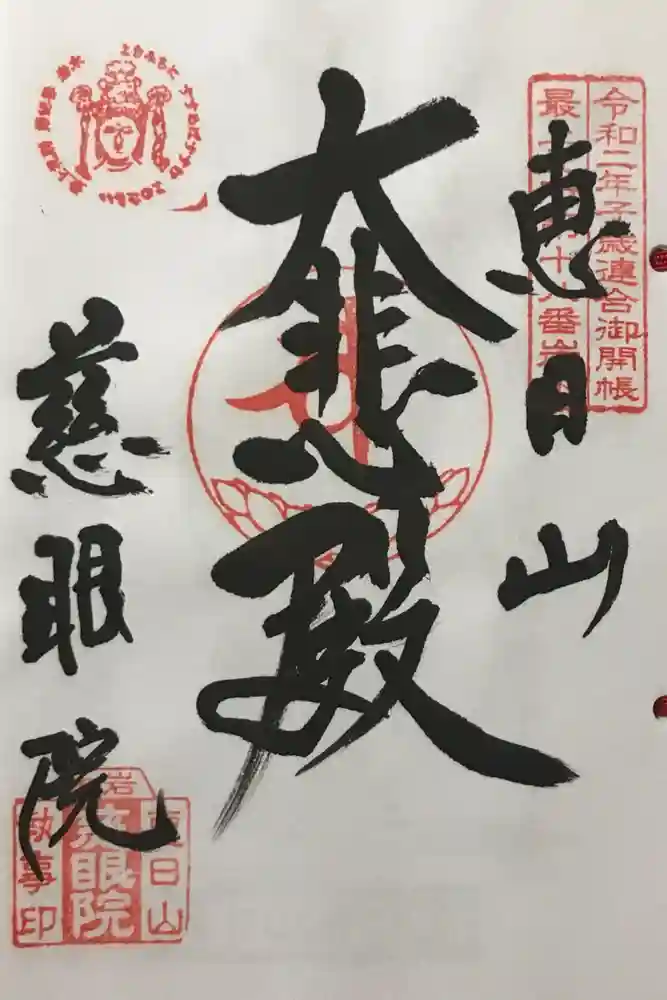 令和二年子歳連合御開帳
最
十八番
恵日山
大悲殿
慈眼院
恵日山
慈眼院
執事印